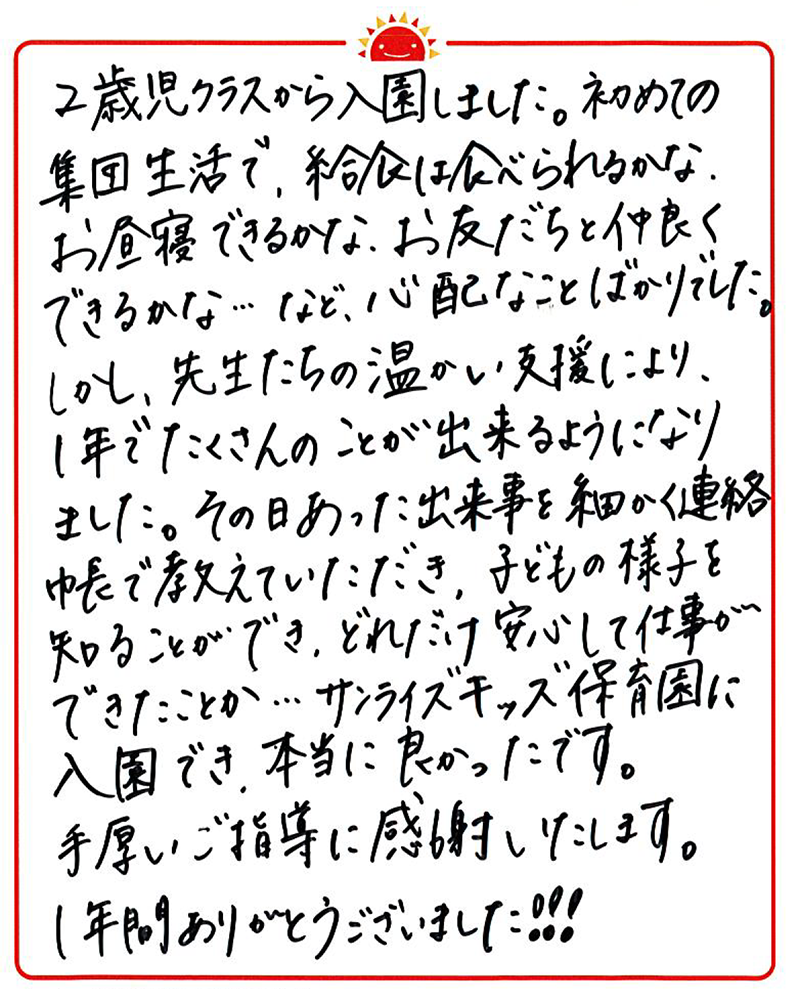 2歳児クラスから入園しました。初めての
集団生活で、給食は食べられるかな、
お昼寝できるかな、お友だちと仲良く
できるかな…など、心配なことばかりでした。
しかし、先生たちの温かい支援により、
1年でたくさんのことが出来るようになり
ました。その日あった出来事を細かく連絡
帳で教えていただき、子どもの様子を
知ることができ、どれだけ安心して仕事が
できたことか…サンライズキッズ保育園に
入園でき、本当に良かったです。
手厚いご指導に感謝いたします。
1年間ありがとうございました!!!